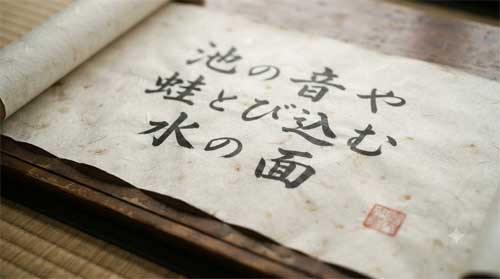 池の音やむ
蛙とび込む
水の面